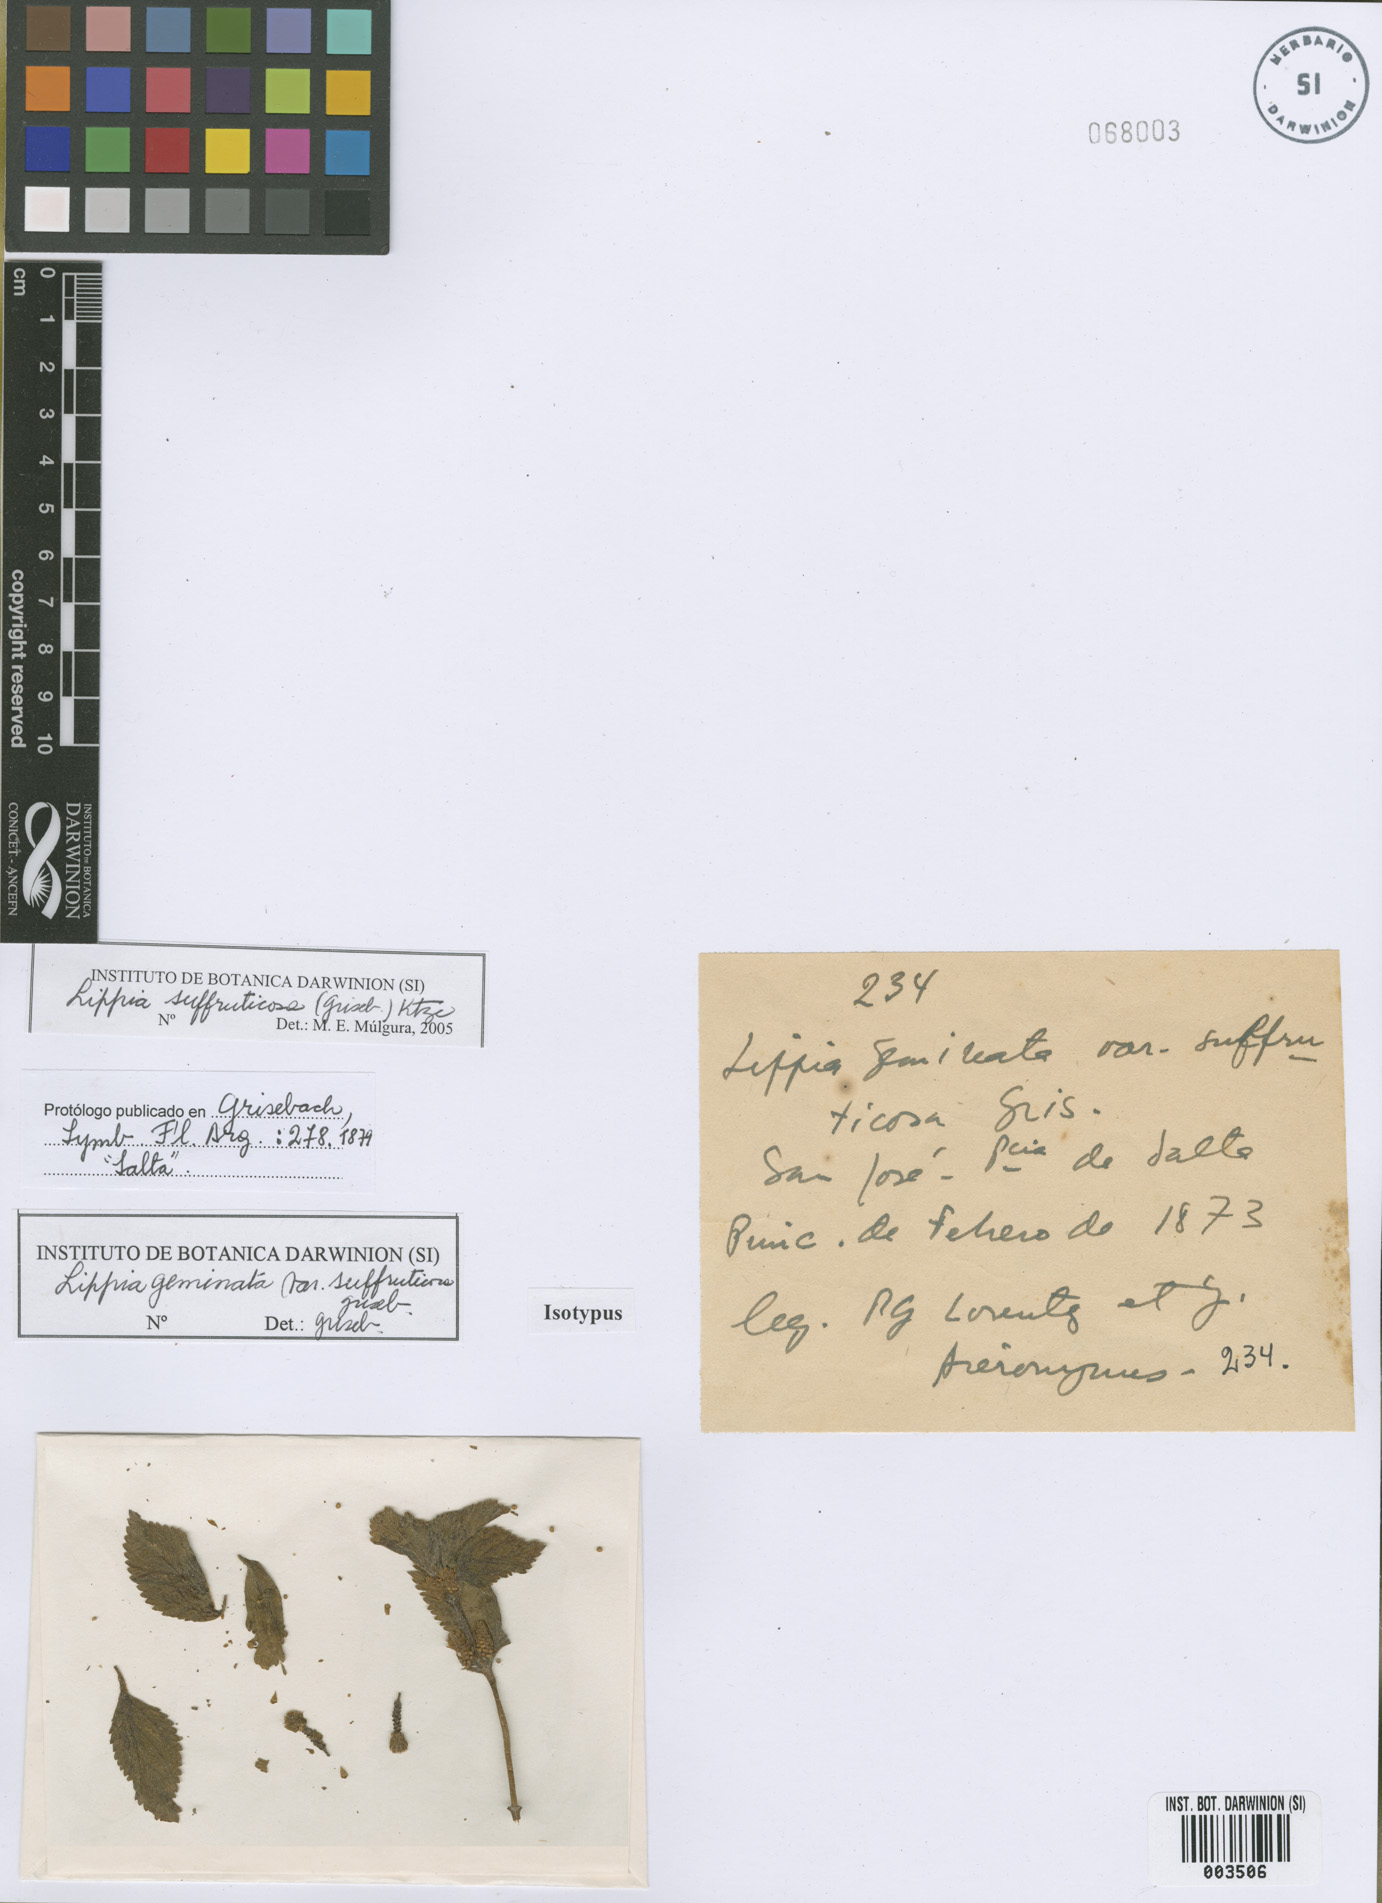 HERBARIO
SI
DARWINION
068003
cm
0 1 2 3 4 5 6 7 8 9 10
copyright reserved
INSTITUTO DE BOTANICA
DARWINION
CONICET - ANCEFN
INSTITUTO DE BOTANICA DARWINION (SI)
Lippia suffruticosa (Griseb.) Ktze
Nº Det.: M. E. Múlgura, 2005
Protólogo publicado en Grisebach,
Symb. Fl. Arg. : 278. 1879
"Salta".
INSTITUTO DE BOTANICA DARWINION (SI)
Lippia geminata var. suffruticosa
Griseb.
Nº Det.: Griseb.
Isotypus
234
Lippia geminata var. suffru
ticosa Gris.
San José - Pcia de Salta
Princ. de Febrero de 1873
leg. PG Lorentz et J.
Hieronymus - 234.
INST. BOT. DARWINION (SI)
003506